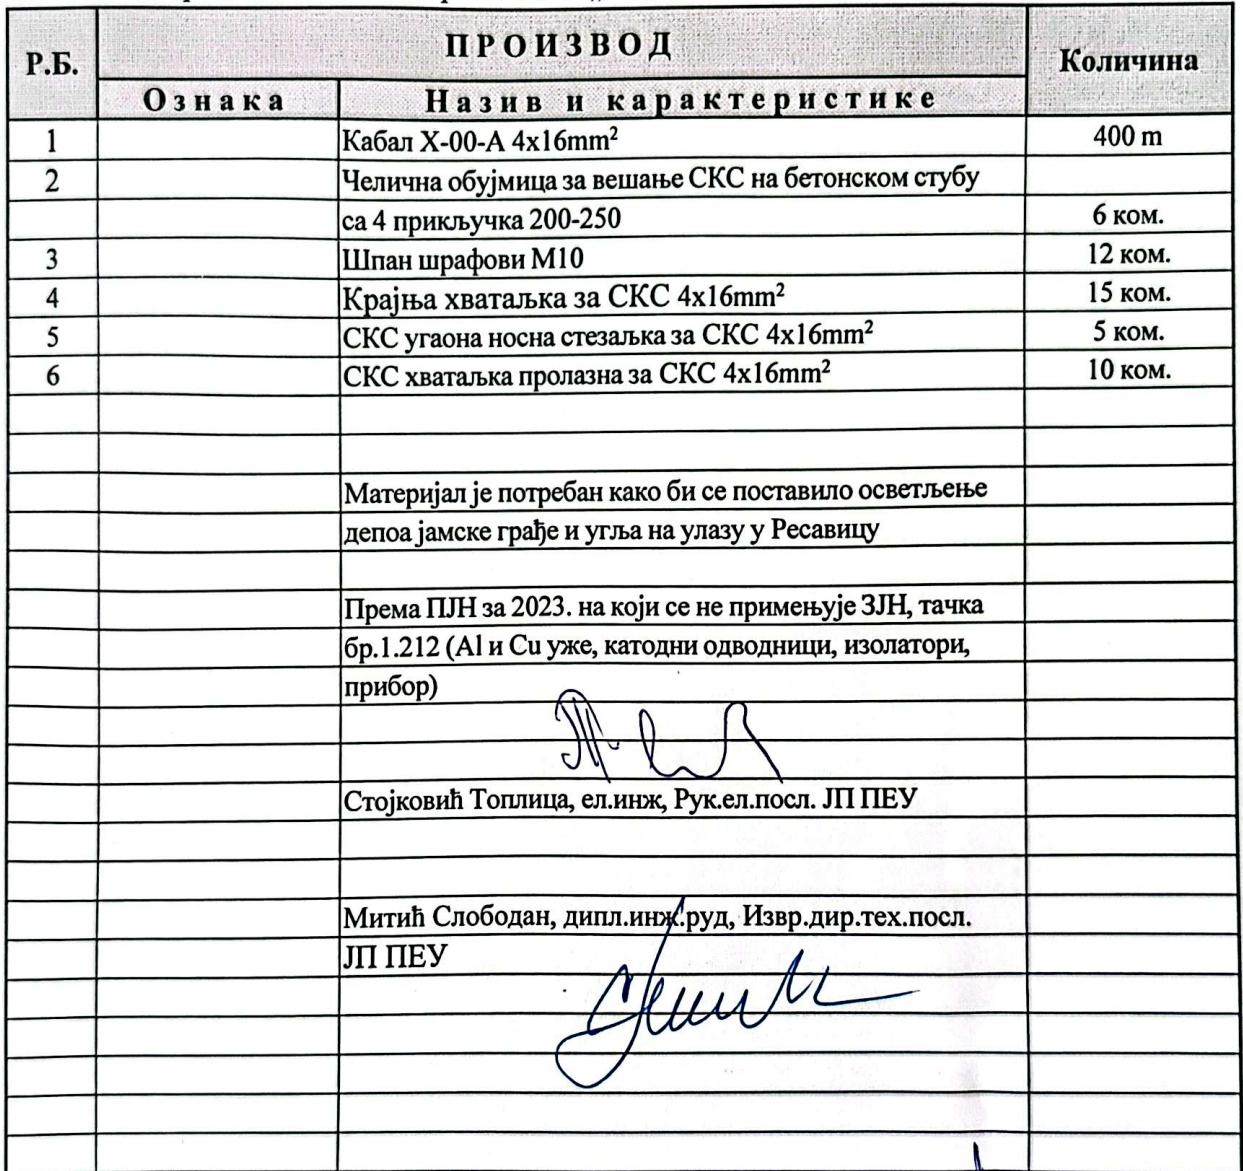 Р.Б. ПРОИЗВОД Количина
Ознака Назив и карактеристике
1 Кабал X-00-A 4x16mm² 400 m
2 Челична обујмица за вешање СКС на бетонском стубу
са 4 прикључка 200-250 6 ком.
3 Шпан шрафови М10 12 ком.
4 Крајња хватаљка за СКС 4x16mm² 15 ком.
5 СКС угаона носна стезаљка за СКС 4x16mm² 5 ком.
6 СКС хватаљка пролазна за СКС 4x16mm² 10 ком.
Материјал је потребан како би се поставило осветљење
депоа јамске грађе и угља на улазу у Ресавицу
Према ПЈН за 2023. на који се не примењује ЗЈН, тачка
бр.1.212 (Al и Cu уже, катодни одводници, изолатори,
прибор)
Стојковић Топлица, ел.инж, Рук.ел.посл. ЈП ПЕУ
Митић Слободан, дипл.инж.руд, Извр.дир.тех.посл.
ЈП ПЕУ